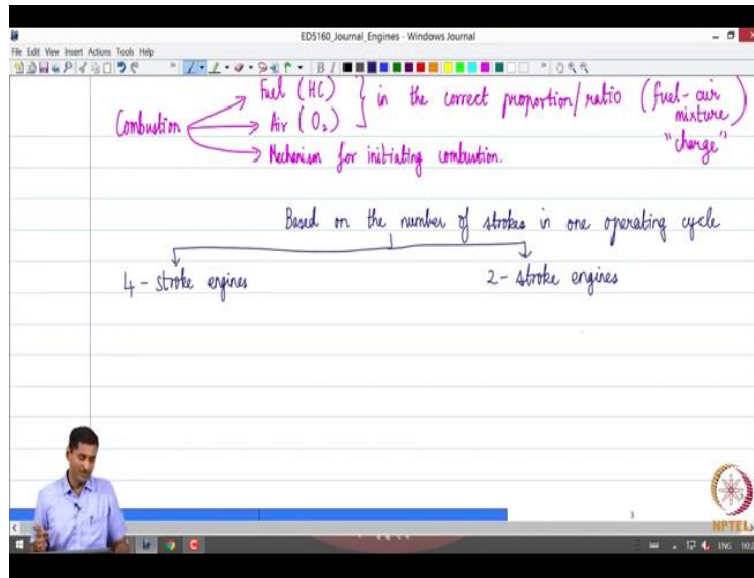 ED5160_Journal_Engines - Windows Journal
File Edit View Insert Actions Tools Help
Fuel (HC)
in the correct proportion/ratio (fuel-air mixture)
"charge"
Combustion
Air (O₂)
Mechanism for initiating combustion.
Based on the number of strokes in one operating cycle
4 - stroke engines
2 - stroke engines
3
NPTEL
ENG